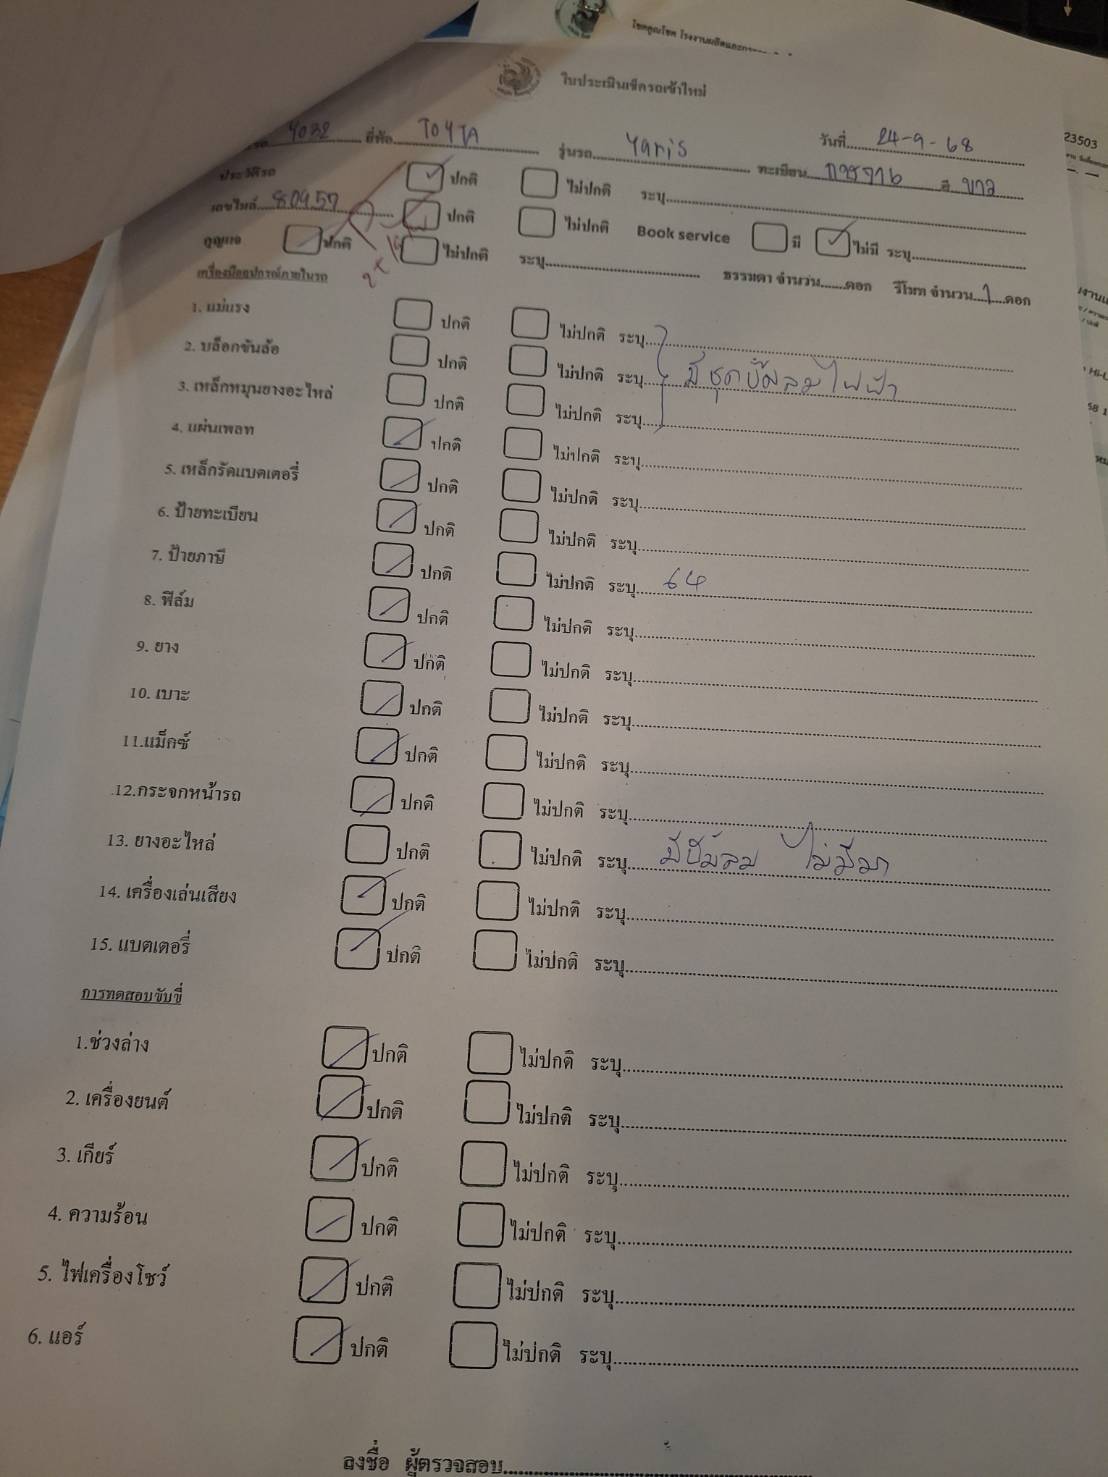 ใบประเมินเช็ครถเข้าใหม่
23503
วันที่ 24-9-68
4032 ยี่ห้อ TOYTA รุ่นรถ Yaris ทะเบียน สี ขาว
ประวัติรถ ปกติ ไม่ปกติ ระบุ
เลขไมล์ 80957 ปกติ ไม่ปกติ Book service มี ไม่มี ระบุ
กุญแจ ปกติ ไม่ปกติ ระบุ ธรรมดา จำนวน ดอก รีโมท จำนวน 1 ดอก
เครื่องมืออุปกรณ์ภายในรถ
1. แม่แรง ปกติ ไม่ปกติ ระบุ
2. บล็อกขันล้อ ปกติ ไม่ปกติ ระบุ มีชุดปั๊มลมไฟฟ้า
3. เหล็กหมุนยางอะไหล่ ปกติ ไม่ปกติ ระบุ
4. แผ่นเพลท ปกติ ไม่ปกติ ระบุ
5. เหล็กรัดแบตเตอรี่ ปกติ ไม่ปกติ ระบุ
6. ป้ายทะเบียน ปกติ ไม่ปกติ ระบุ
7. ป้ายภาษี ปกติ ไม่ปกติ ระบุ 64
8. ฟิล์ม ปกติ ไม่ปกติ ระบุ
9. ยาง ปกติ ไม่ปกติ ระบุ
10. เบาะ ปกติ ไม่ปกติ ระบุ
11.แม็กซ์ ปกติ ไม่ปกติ ระบุ
12.กระจกหน้ารถ ปกติ ไม่ปกติ ระบุ
13. ยางอะไหล่ ปกติ ไม่ปกติ ระบุ มีปั๊มลม ไม่มีมา
14. เครื่องเล่นเสียง ปกติ ไม่ปกติ ระบุ
15. แบตเตอรี่ ปกติ ไม่ปกติ ระบุ
การทดสอบขับขี่
1.ช่วงล่าง ปกติ ไม่ปกติ ระบุ
2. เครื่องยนต์ ปกติ ไม่ปกติ ระบุ
3. เกียร์ ปกติ ไม่ปกติ ระบุ
4. ความร้อน ปกติ ไม่ปกติ ระบุ
5. ไฟเครื่องโชว์ ปกติ ไม่ปกติ ระบุ
6. แอร์ ปกติ ไม่ปกติ ระบุ
ลงชื่อ ผู้ตรวจสอบ